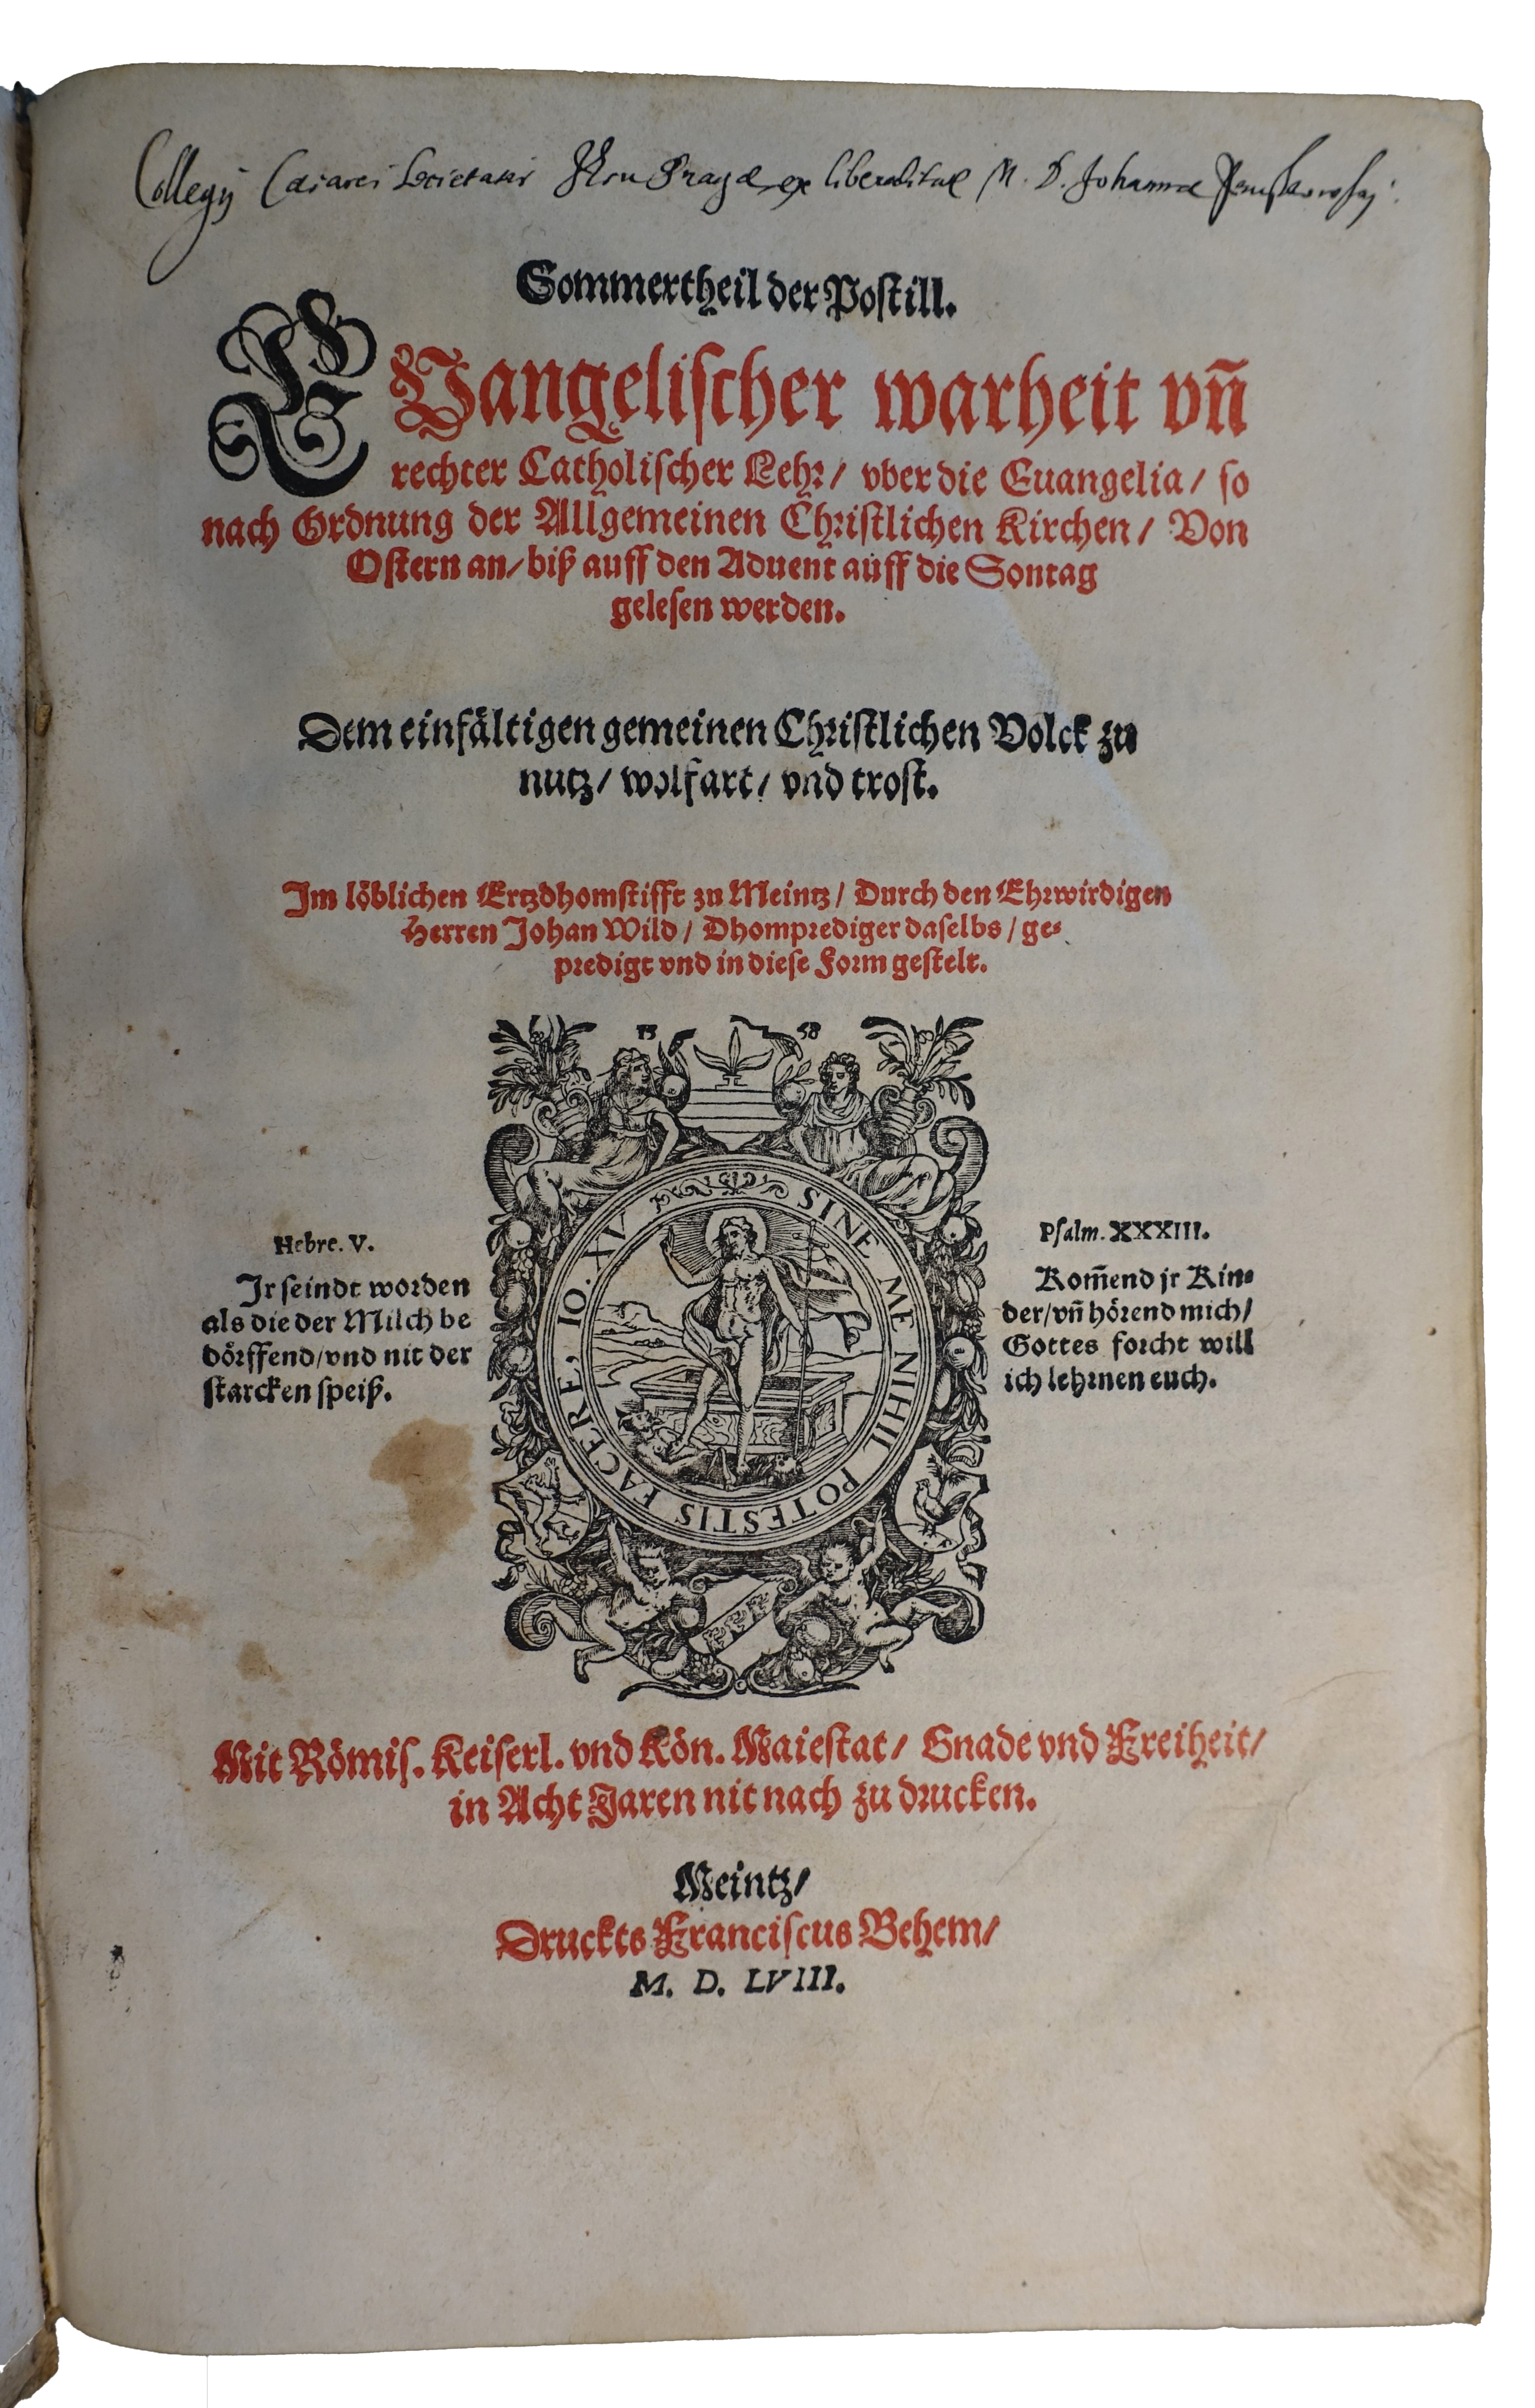 Collegij Caesarei Societatis Jesu Pragae ex liberalitate M. D. Johannis
Sommertheil der Postill.
EVangelischer warheit vñ
rechter Catholischer Lehr/ vber die Euangelia/ so
nach Ordnung der Allgemeinen Christlichen Kirchen/ Von
Ostern an/ biß auff den Aduent auff die Sontag
gelesen werden.
Dem einfältigen gemeinen Christlichen Volck zu
nutz/ wolfart/ vnd trost.
Im löblichen Ertzdhomstifft zu Meintz/ Durch den Ehrwirdigen
Herren Johan Wild/ Dhomprediger daselbs/ ge-
predigt vnd in diese Form gestelt.
15 58
SINE ME NIHIL POTESTIS FACERE. IO. XV
Hebre. V.
Ir seindt worden
als die der Milch be
dörffend/vnd nit der
starcken speiß.
Psalm. XXXIII.
Kom̃end jr Kin-
der/vñ hörend mich/
Gottes forcht will
ich lehrnen euch.
Mit Römis. Keiserl. vnd Kön. Maiestat/ Gnade vnd Freiheit/
in Acht Jaren nit nach zu drucken.
Meintz/
Druckts Franciscus Behem/
M. D. LVIII.